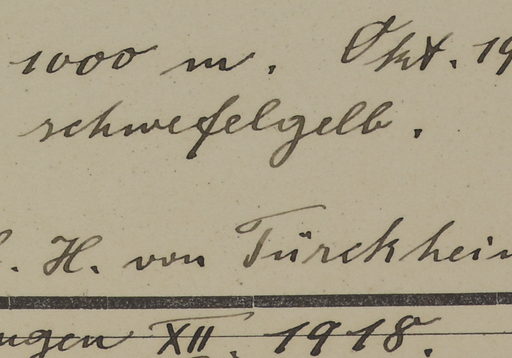 1000 m. Okt. 19
schwefelgelb.
. H. von Türckhein
ngen XII. 1918.